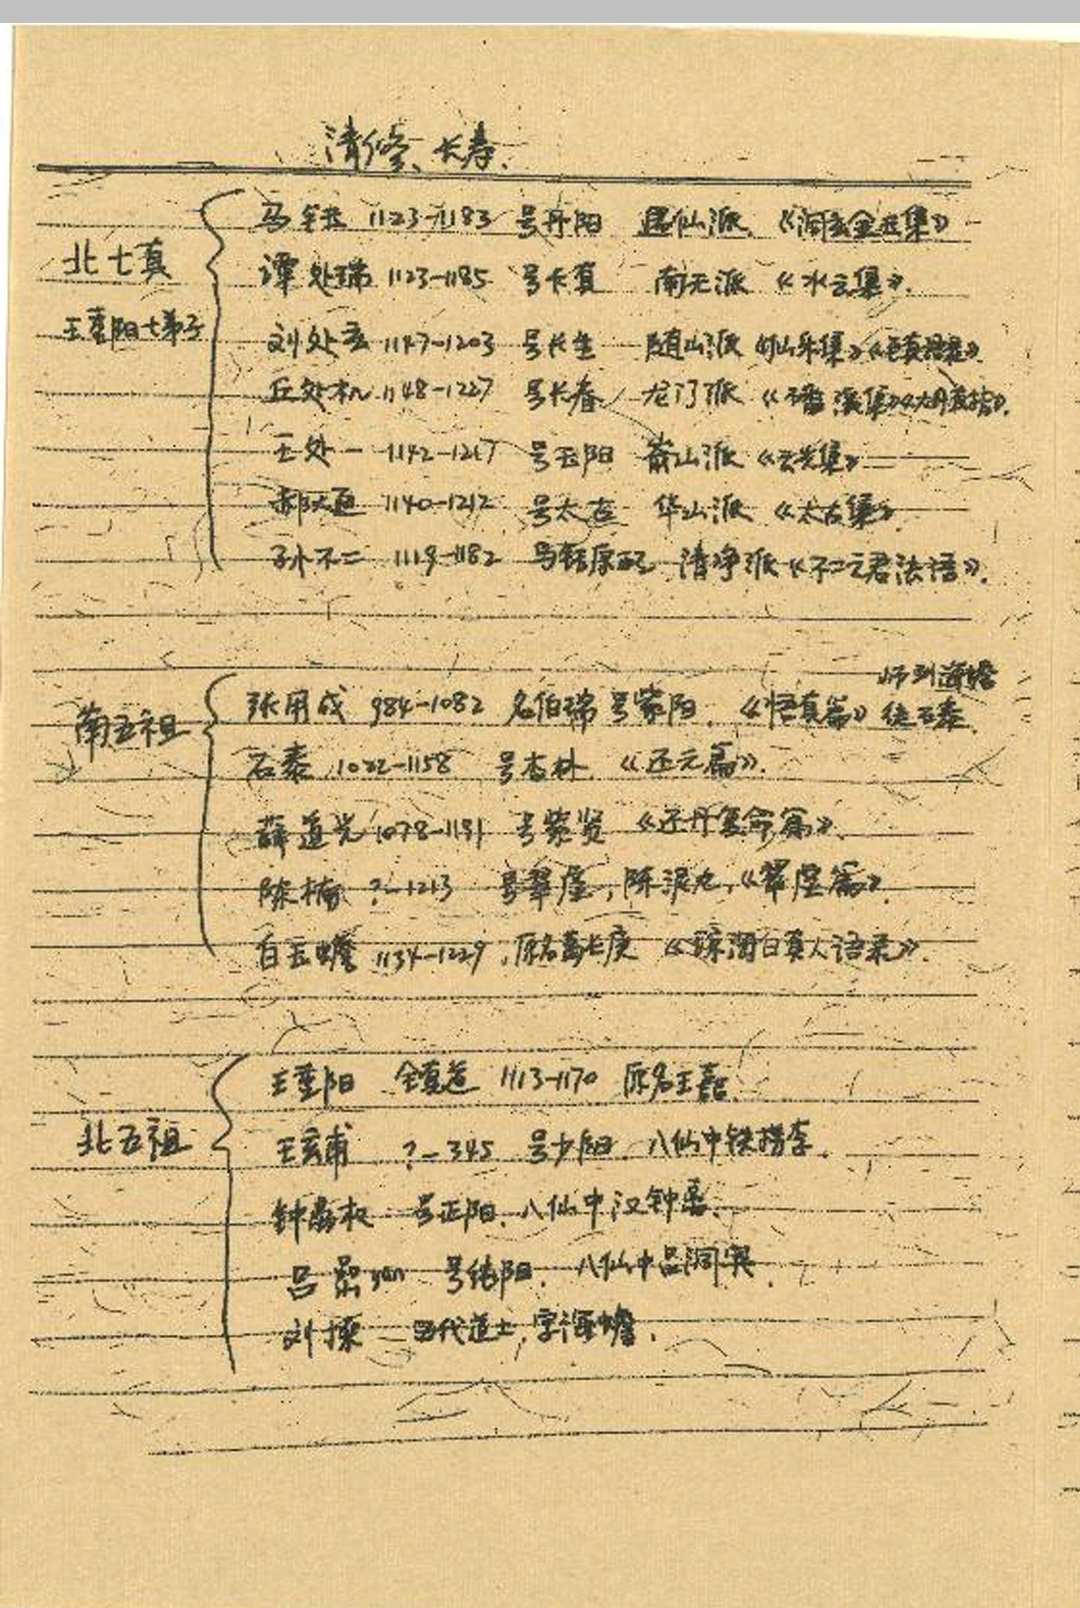 清修、长寿.
北七真
王重阳七弟子
马钰 1123-1183 号丹阳 遇仙派 《洞玄金玉集》
谭处瑞 1123-1185 号长真 南无派 《水云集》.
刘处玄 1147-1203 号长生 随山派 《仙乐集》
丘处机 1148-1227 号长春 龙门派 《磻溪集》《大丹直指》.
王处一 1142-1217 号玉阳 嵛山派 《云光集》
郝大通 1140-1212 号太古 华山派 《太古集》.
孙不二 1119-1182 马钰原配 清净派 《不二元君法语》.
师刘海蟾
南五祖
张用成 984-1082 名伯瑞 号紫阳. 《悟真篇》 徒石泰.
石泰 1022-1158 号杏林. 《还元篇》.
薛道光 1078-1191 号紫贤 《还丹复命篇》.
陈楠 ?-1213 号翠虚, 陈泥丸, 《翠虚篇》.
白玉蟾 1134-1229, 原名葛长庚 《琼琯白真人语录》.
北五祖
王重阳 全真道 1113-1170 原名王嚞.
王玄甫 ?-345 号少阳. 八仙中铁拐李.
钟离权 号正阳. 八仙中汉钟离.
吕喦yan 号纯阳. 八仙中吕洞宾.
刘操 五代道士, 字海蟾.